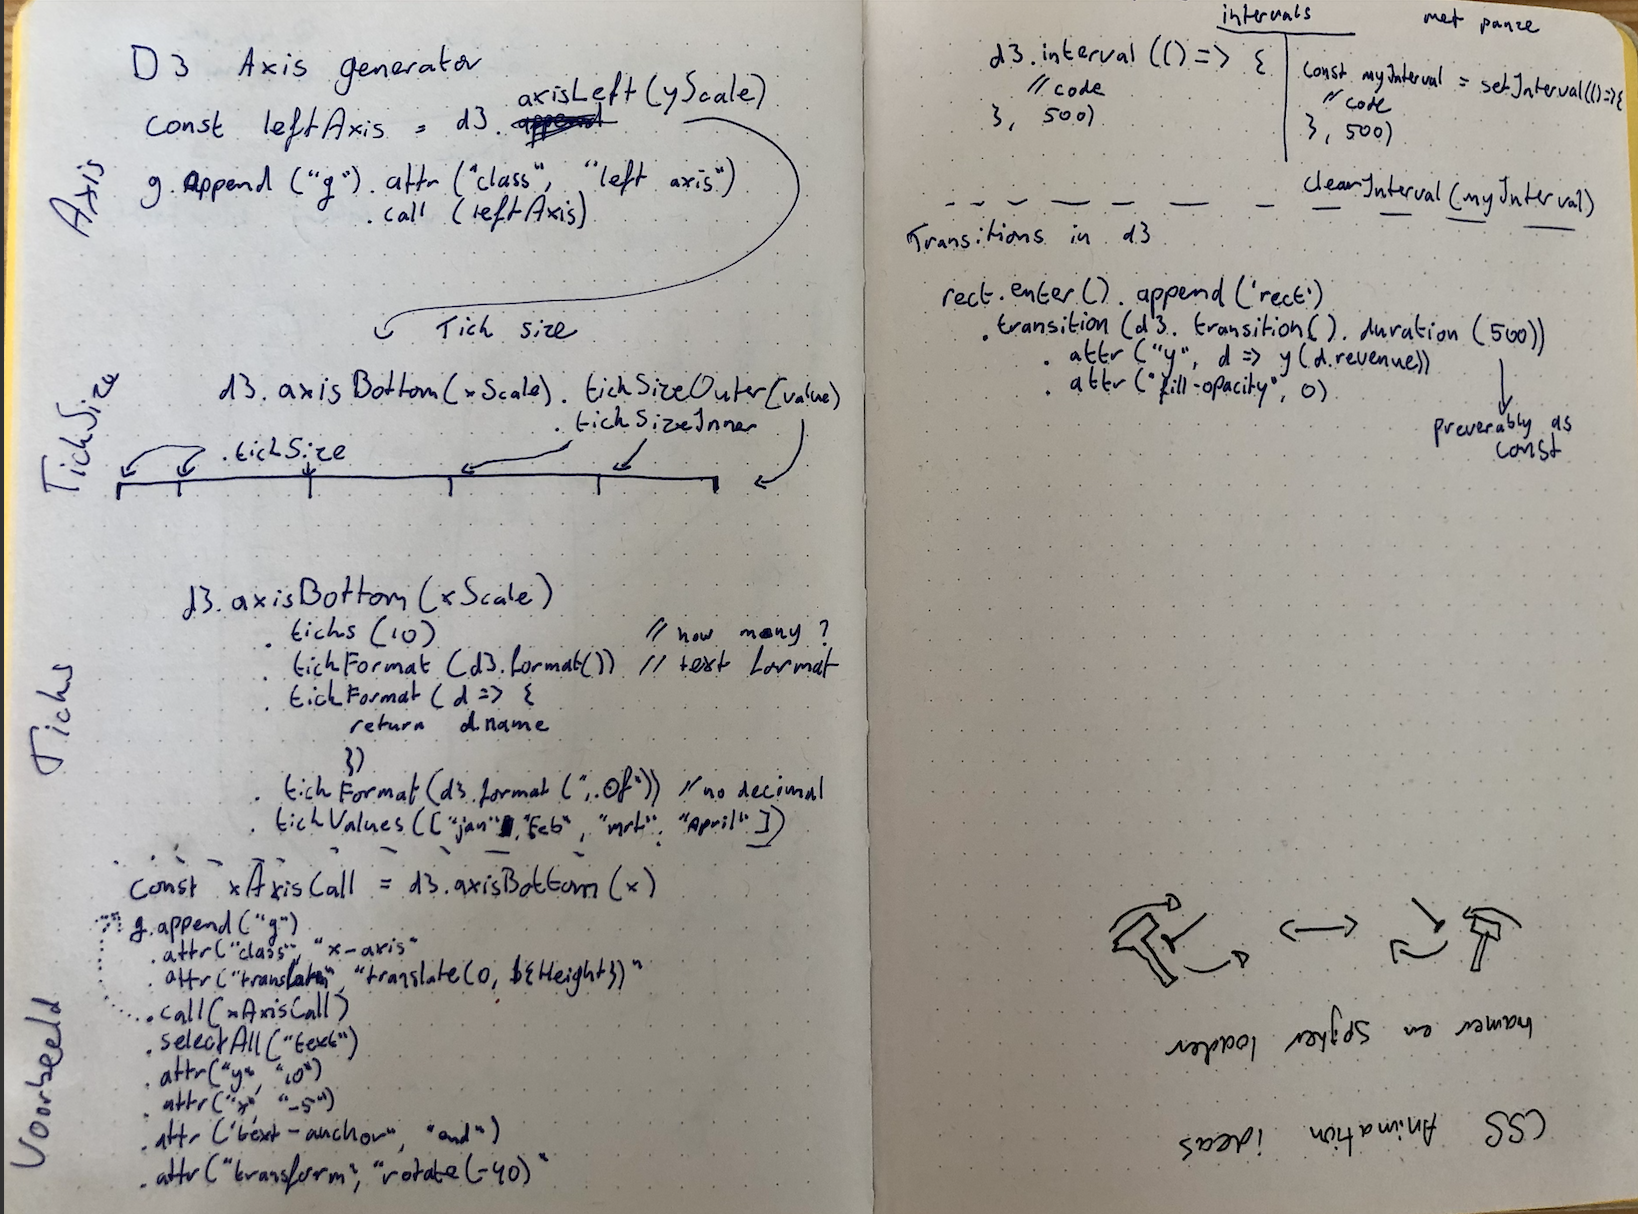 D3 Axis generator
const leftAxis = d3.axisLeft(yScale)
Axis
g.append("g").attr("class", "left axis")
.call (leftAxis)
Tick size
TickSize
d3.axisBottom(xScale).tickSizeOuter(value)
.tickSizeInner
.tickSize
d3.axisBottom(xScale)
.ticks (10) // how many?
.tickFormat (d3.format()) // text format
.tickFormat (d => {
return d.name
})
Ticks
.tickFormat(d3.format(",.0f")) // no decimal
.tickValues(["jan", "Feb", "mrt", "April"])
const xAxisCall = d3.axisBottom(x)
g.append("g")
.attr("class", "x-axis"
.attr("translate", "translate(0, ${Height})"
.call(xAxisCall)
.selectAll("text")
.attr("y", "10")
.attr("x", "-5")
.attr("text-anchor", "end")
.attr("transform", "rotate(-40)"
Voorbeeld
intervals
met pauze
d3.interval(() => {
// code
}, 500)
const myInterval = setInterval(()=>{
// code
}, 500)
clearInterval(myInterval)
Transitions in d3
rect.enter().append('rect')
.transition(d3.transition().duration(500))
.attr("y", d => y(d.revenue))
.attr("fill-opacity", 0)
preverably as
const
CSS Animation ideas
hamer en spijker loader